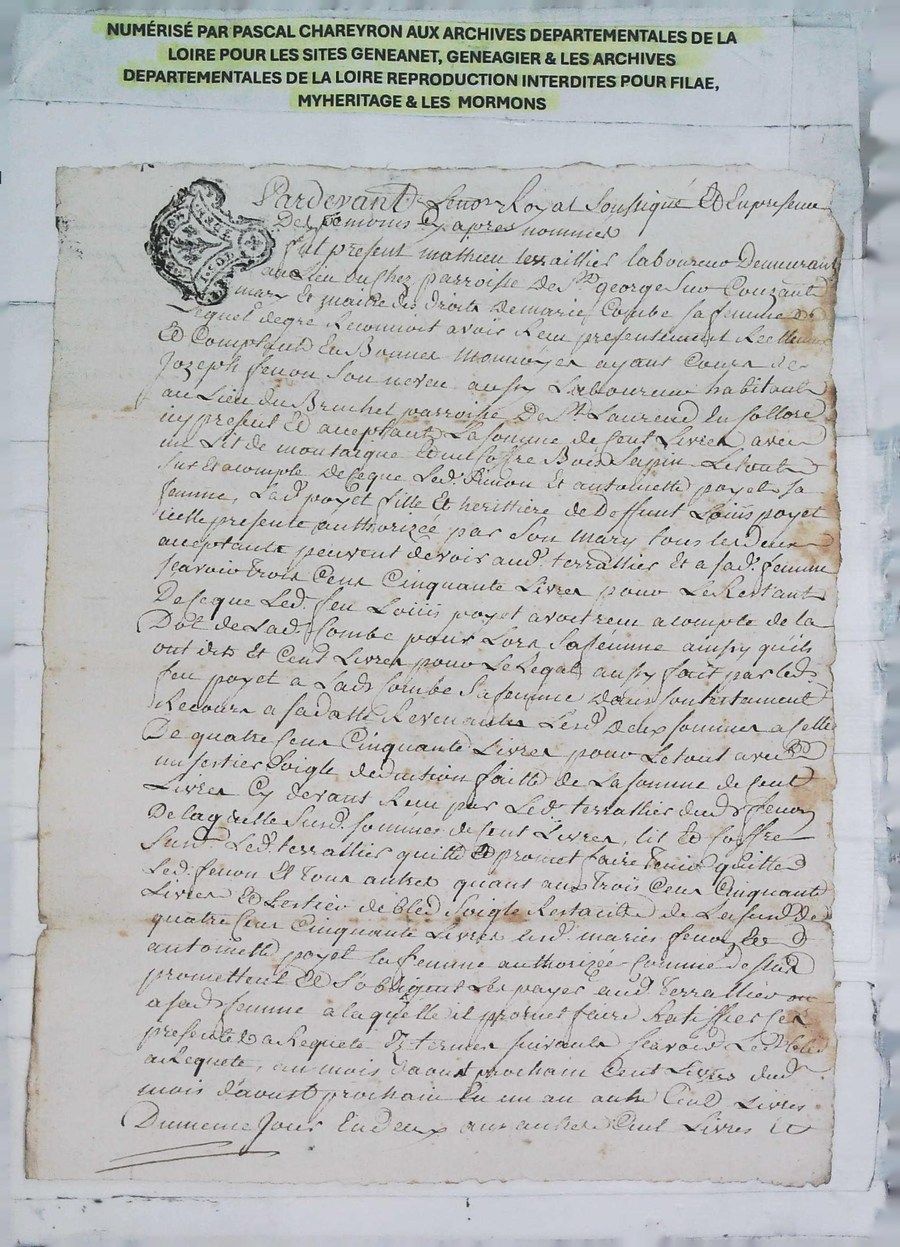 NUMÉRISÉ PAR PASCAL CHAREYRON AUX ARCHIVES DEPARTEMENTALES DE LA
LOIRE POUR LES SITES GENEANET, GENEAGIER & LES ARCHIVES
DEPARTEMENTALES DE LA LOIRE REPRODUCTION INTERDITES POUR FILAE,
MYHERITAGE & LES MORMONS
Pardevant Lenore Royal Soussigné Et En presence
Des temoins Cy apres nommés
fut present mathieu terraillier laboureur Demeurant
au Lieu du Chez parroisse de St george Sur Couzant
mary Et maitre des droits De marie Combe sa femme
Lequel de gré Reconnoit avoir Reçu presentement Reellement
Et Comptant En Bonnes Monnoyes ayant Cours de
Jozeph fenon Son neveu aussy Laboureur habitant
au Lieu du Bruchet parroisse De St Laurend En Sollore
icy present Et aceptant La somme de Cent Livres avec
un Lit de montaigne Et un Coffre Bois Sapin Le tout
Sur Et acompte De Ceque Led. fenon Et antoinette poyet sa
femme, Lad. poyet fille Et heritiere de Deffunt Loüis poyet
icelle presente authorizée par Son mary tous les Deux
aceptants peuvent devoir aud. terrallier Et a sad. femme
Scavoir trois Cent Cinquante Livres pour Le Restant
De Ceque Led. feu Loüis poyet avoit reçu acompte de la
Dot de Lad. Combe pour Lors Sa femme ainsy qu'ils
ont dit Et Cent Livres pour Le Legat aussy fait par led.
feu poyet a Lad. Combe Sa femme dans Son testament
Recours a Sa datte Revenants Lesd. Deux Sommes a Celle
De quatre Cent Cinquante Livres pour Le tout avec
un Sestier Soigle deduction faitte de La somme de Cent
Livres Cy devant Reçu par Led. terrallier dud. fenon
De laquelle Susd. Somme de Cent Livres, lit Et Coffre
Susd. Led. terrallier quitte Et promet faire tenir quitte
Led. fenon Et tous autres quant aux trois Cent Cinquante
Livres Et Sestier de bled Soigle Restants de
quatre Cent Cinquante Livres Lesd. maries fenon Et
antoinette poyet Sa femme authorizée Comme dessus
promettent Et S'obligent Les payer aud. terrallier ou
a sad. femme a laquelle il promet faire Ratiffier Ces
presentes a Requete Et termes Suivants Scavoir Led. bled
a Requete, au mois d'aoust prochain Cent Livres dud.
mois d'aoust prochain En un an autre Cent Livres
Du meme Jour En deux ans autre Cent Livres